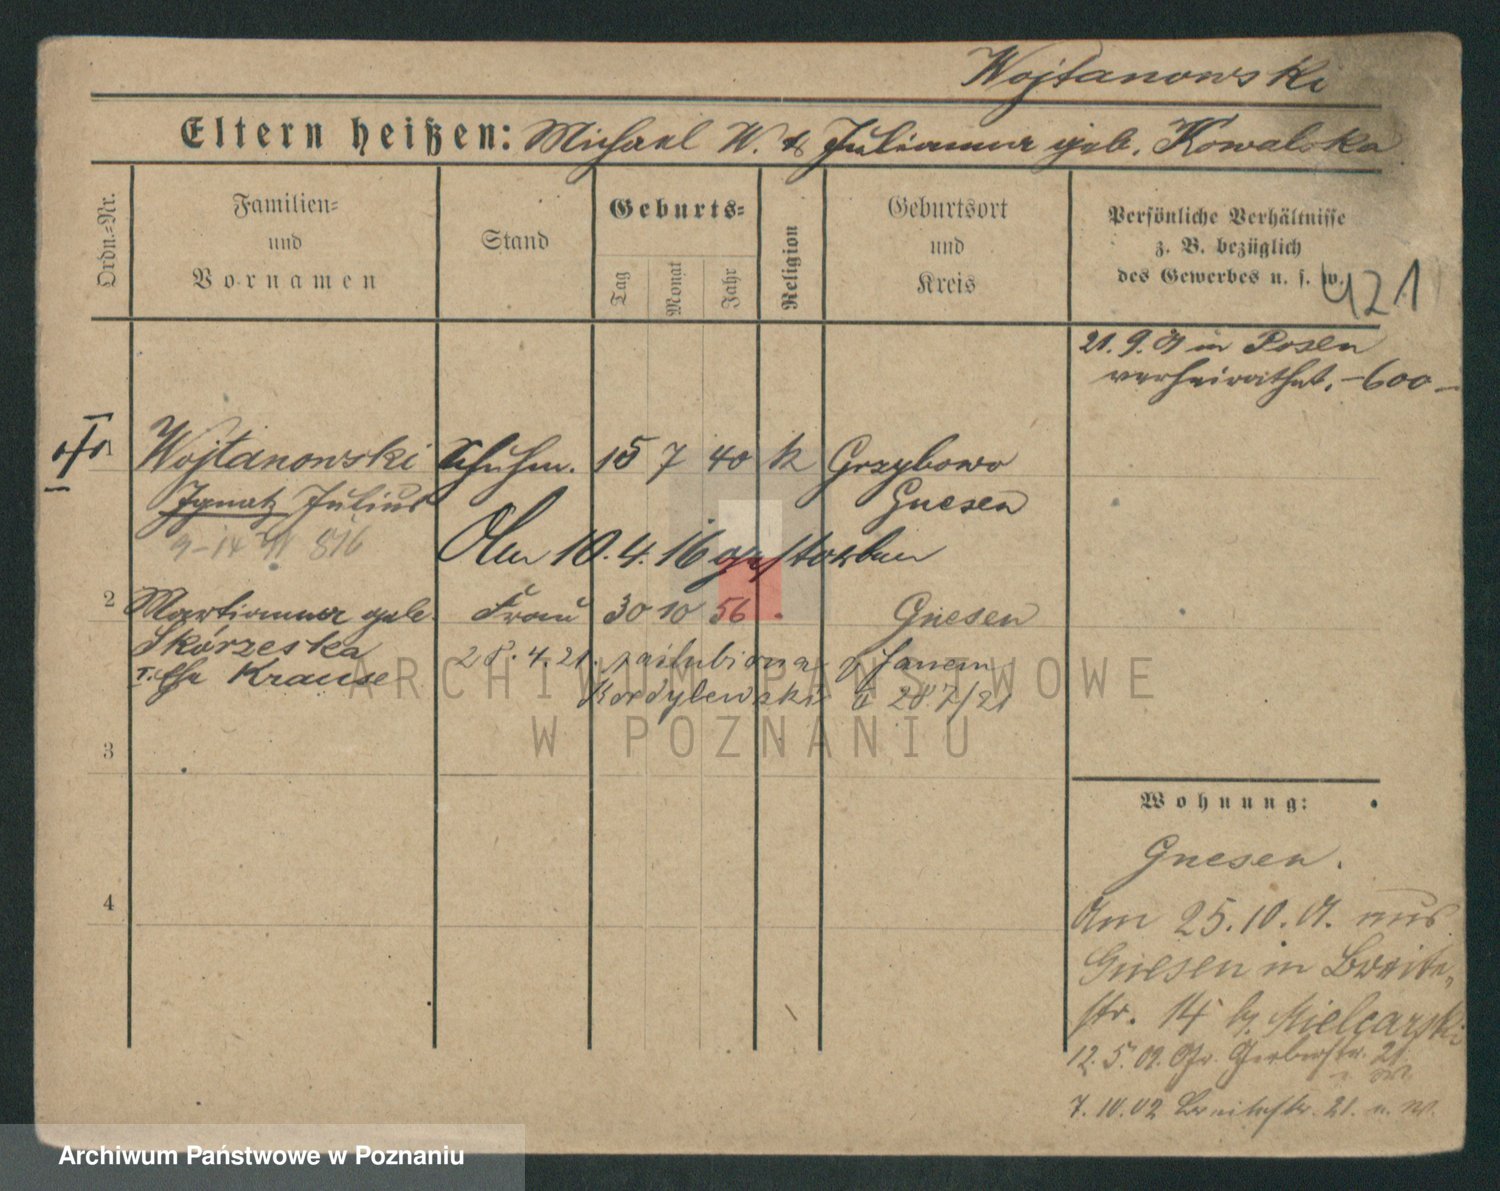 Wojtanowski
Eltern heißen: Michael W. & Julianna geb. Kowalska
Ordn.=Nr.
Familien=
und
Vornamen
Stand
Geburts=
Tag
Monat
Jahr
Religion
Geburtsort
und
Kreis
Persönliche Verhältnisse
z. B. bezüglich
des Gewerbes u. s. w.
421
21.9.01 in Posen
verheirathet. -600-
Wojtanowski Schuhm. 15 7 40 k Grzybowo
Ignatz Julius Gnesen
9-14 816
Am 10.4.16 gestorben
2 Martianna geb. Frau 30 10 56 Gnesen
Skórzeska 28.4.21. zaślubiona z Janem
I. Ehe Krause Kordylewski 28 7/21
3
Wohnung:
Gnesen.
4
Am 25.10.01. aus
Gnesen in Breite-
str. 14 bj. Mielcarski
12.5.02. Gr. Gerberstr. 21
7.10.02 Breitestr. 21. n. W.
ARCHIWUM PAŃSTWOWE
W POZNANIU
Archiwum Państwowe w Poznaniu